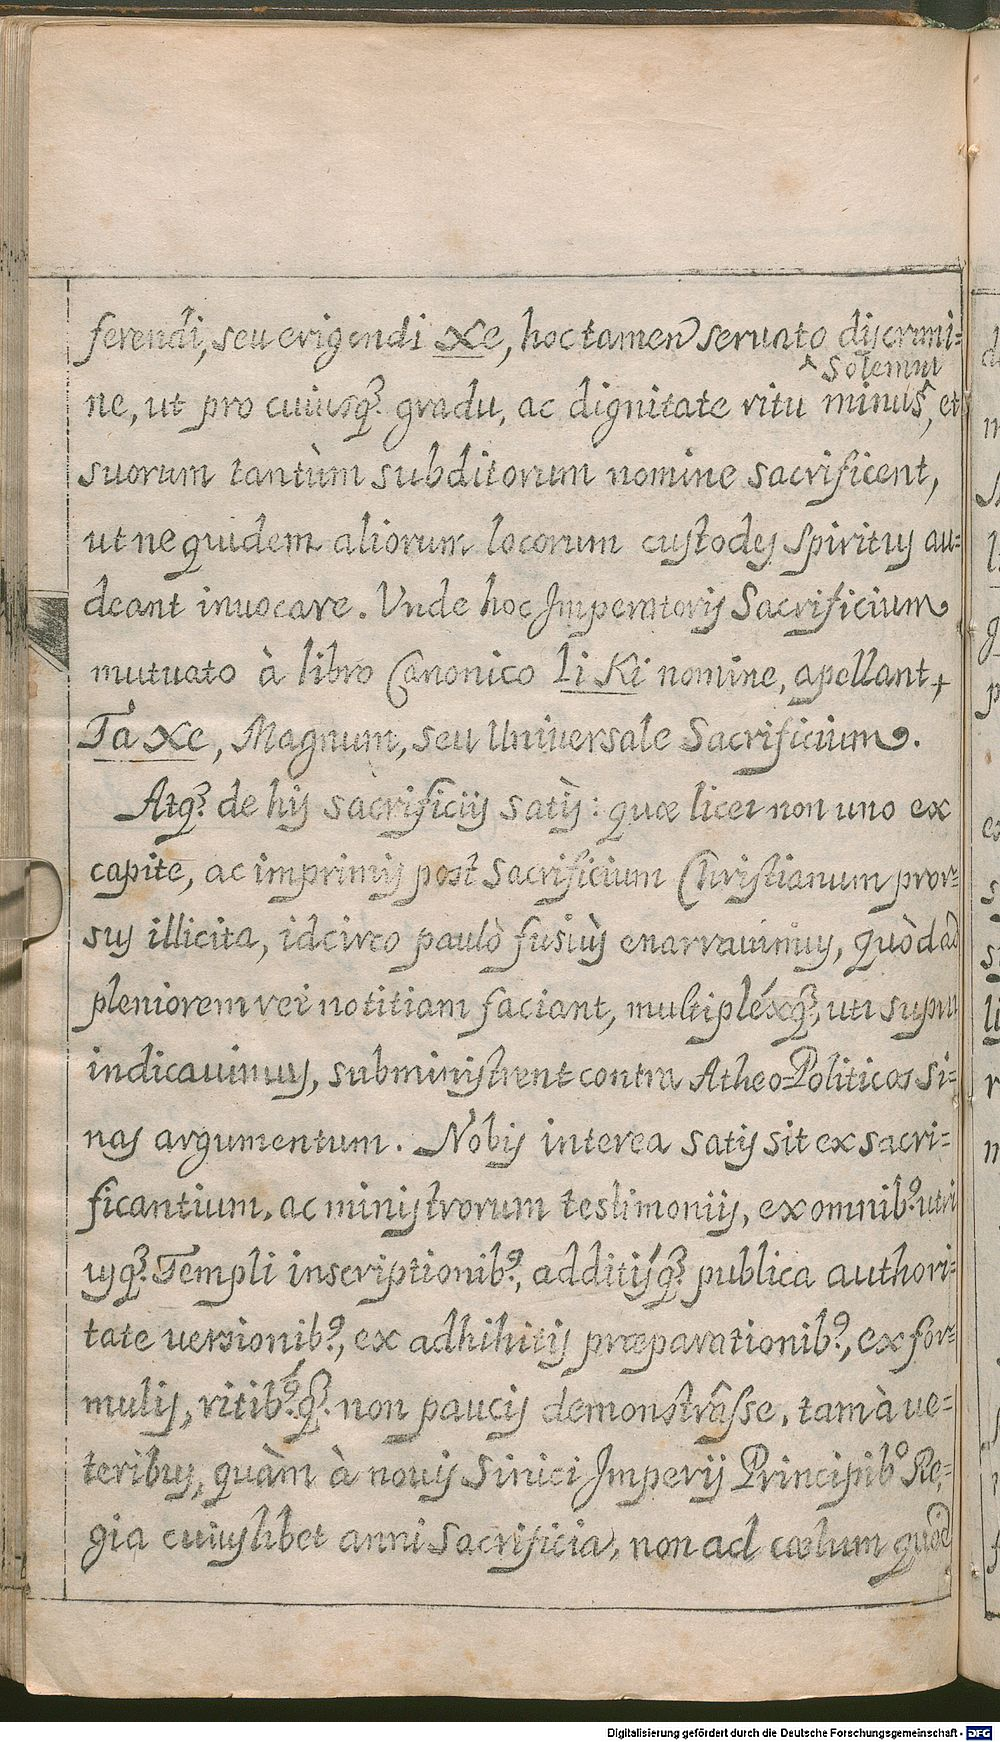 ferendi, seu erigendi Xe, hoc tamen servato discrimi=
^ Solemni
ne, ut pro cuiusq? gradu, ac dignitate ritu minus, et
suorum tantùm subditorum nomine sacrificent,
ut ne quidem aliorum locorum custodes spiritus au=
deant invocare. Vnde hoc Imperatoris Sacrificium
mutuato à libro Canonico Li Ki nomine, apellant
Ta Xe, Magnum, seu Universale Sacrificium.
Atq? de his sacrificiis satis: quæ licet non uno ex
capite, ac imprimis post Sacrificium Christianum pror=
sus illicita, idcirco paulò fusiùs enarravimus, quòd ad
pleniorem rei notitiam faciant, multipléxq?, uti supra
indicavimus, subministrent contra Atheo-Politicos Si=
nas argumentum. Nobis interea satis sit ex sacri=
ficantium, ac ministrorum testimoniis, ex omnib? utri
usq? Templi inscriptionib?, additisq? publica authori=
tate versionib?, ex adhibitis præparationib?, ex for=
mulis, ritib?q? non paucis demonstrâsse, tam à ve=
teribus, quàm à novis Sinici Imperij Principib? Re=
gia cuiuslibet anni Sacrificia, non ad cœlum quod
Digitalisierung gefördert durch die Deutsche Forschungsgemeinschaft - DFG